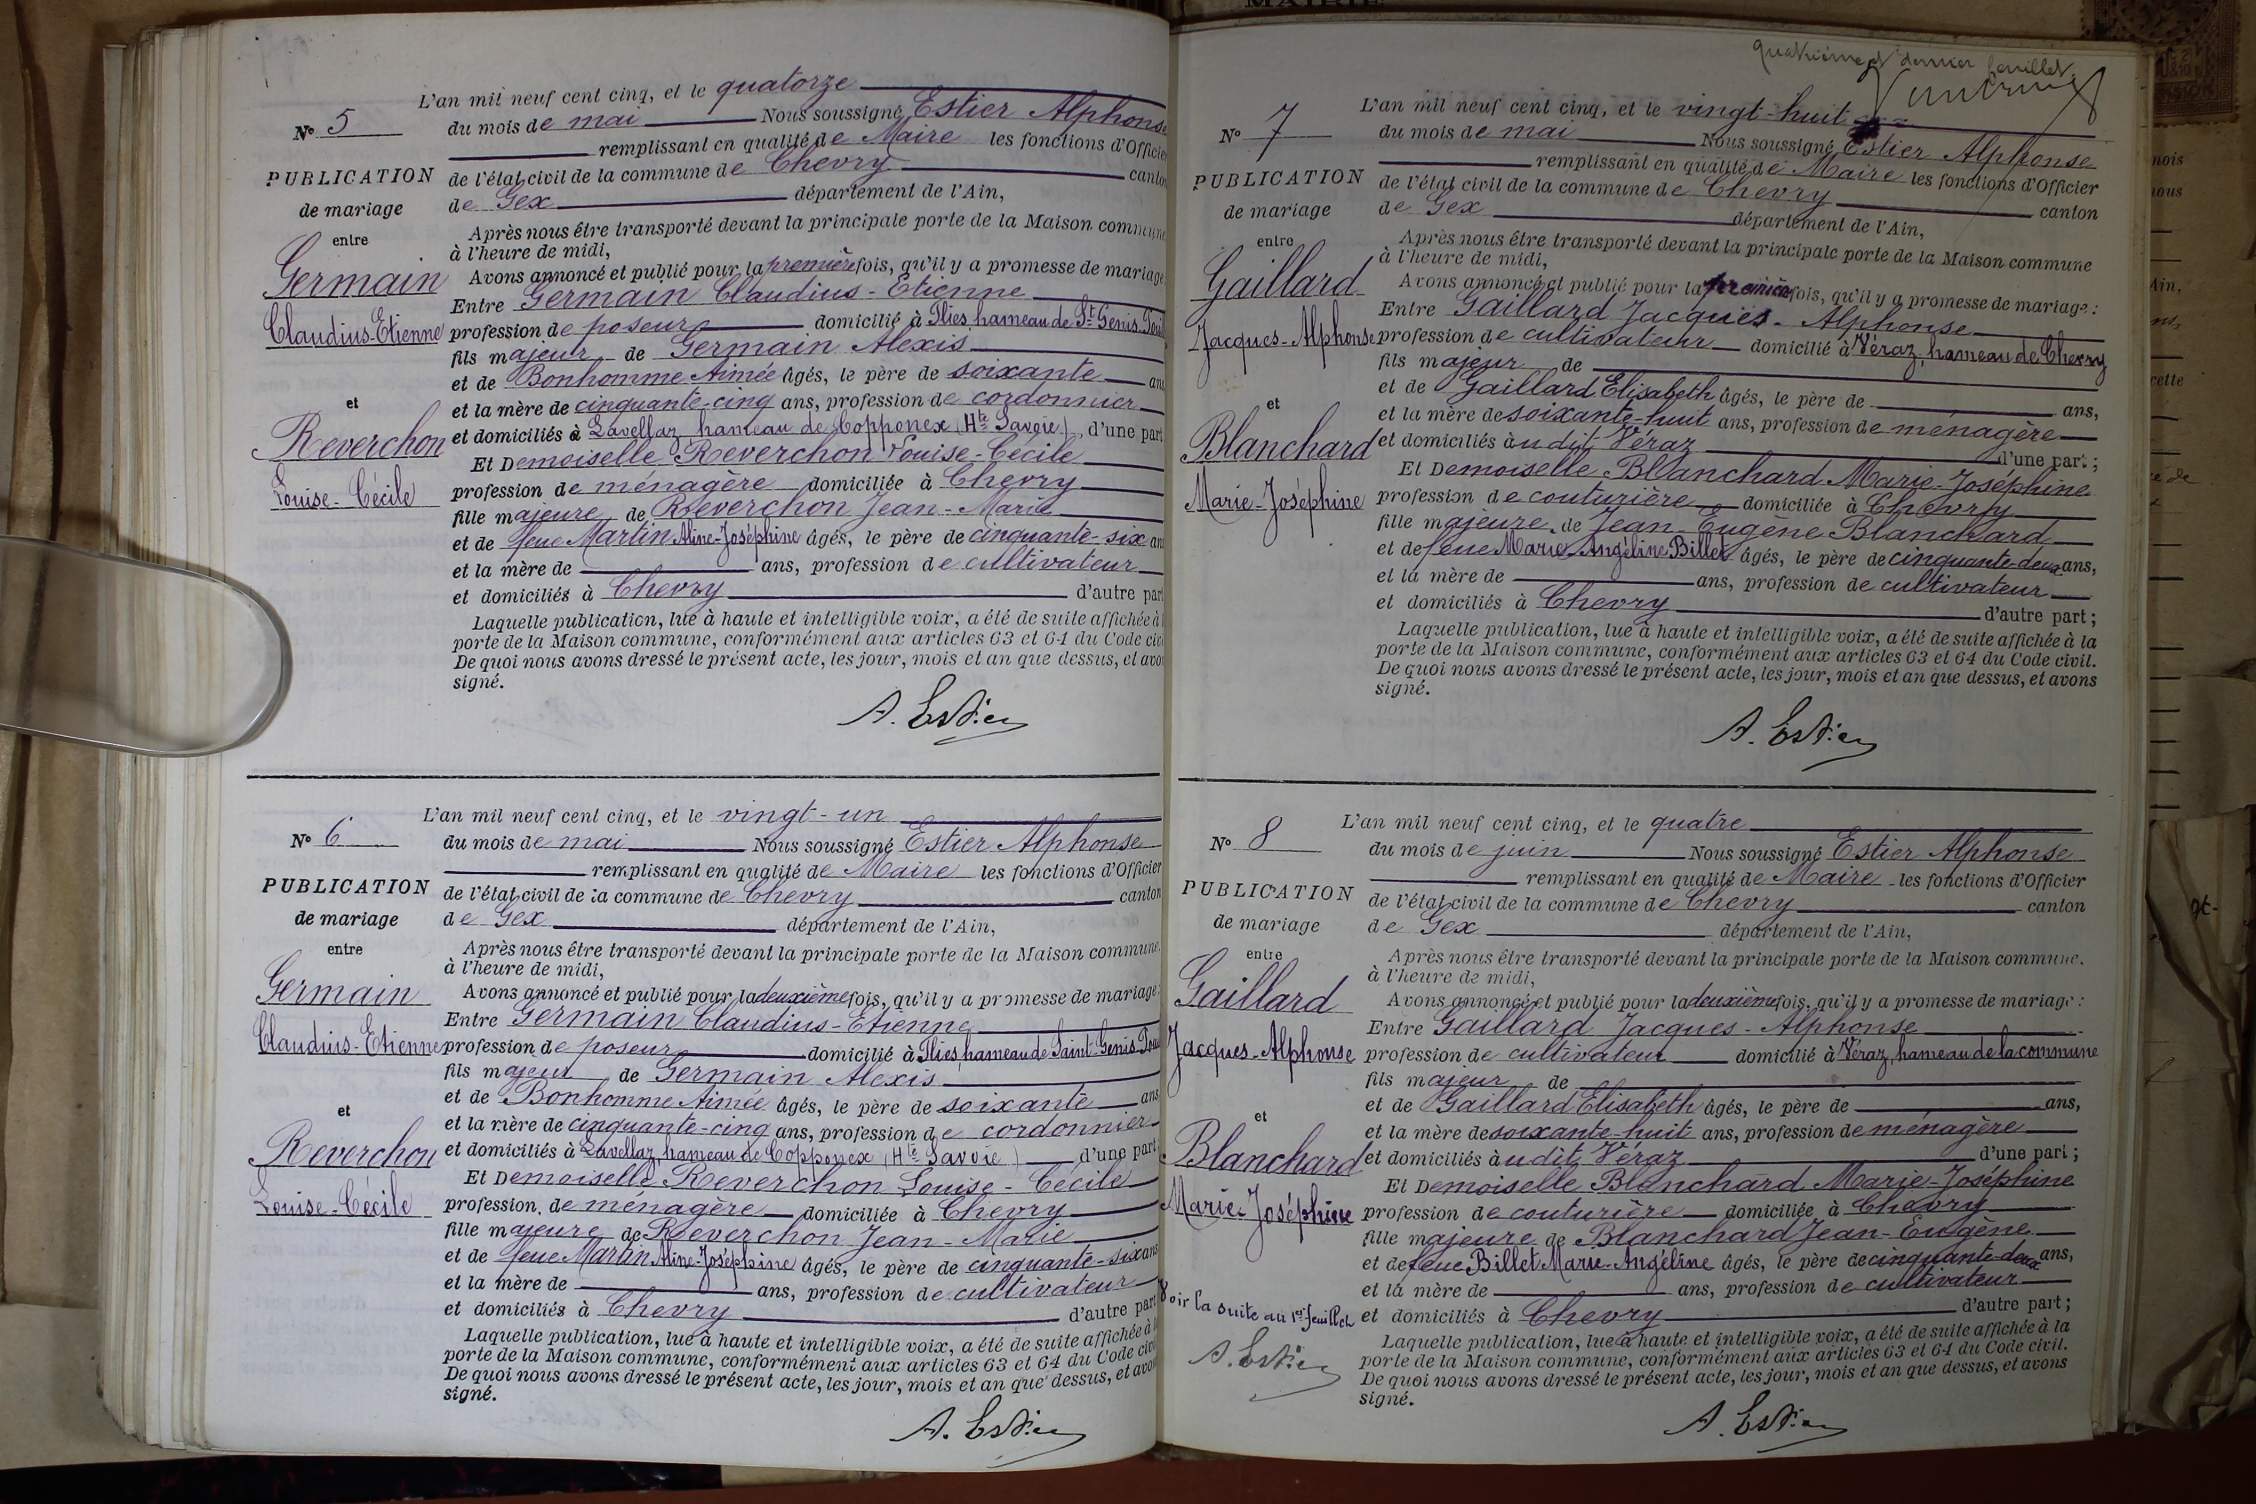 L'an mil neuf cent cinq, et le quatorze
N° 5
du mois de mai Nous soussigné Estier Alphonse
remplissant en qualité de Maire les fonctions d'Officier
PUBLICATION
de mariage
entre
Germain
Claudius-Etienne
et
Reverchon
Louise-Cécile
de l'état civil de la commune de Chevry canton
de Gex département de l'Ain,
Après nous être transporté devant la principale porte de la Maison commune
à l'heure de midi,
Avons annoncé et publié pour la première fois, qu'il y a promesse de mariage
Entre Germain Claudius-Etienne
profession de poseur domicilié à Flies, hameau de St Genis-Poui
fils majeur de Germain Alexis
et de Bonhomme Aimée âgés, le père de soixante ans
et la mère de cinquante-cinq ans, profession de cordonnier
et domiciliés à Lavellaz, hameau de Copponex (Hte Savoie), d'une part
Et Demoiselle Reverchon Louise-Cécile
profession de ménagère domiciliée à Chevry
fille majeure de Reverchon Jean-Marie
et de feue Martin Aline-Joséphine âgés, le père de cinquante-six ans
et la mère de ans, profession de cultivateur
et domiciliés à Chevry d'autre part
Laquelle publication, lue à haute et intelligible voix, a été de suite affichée à l
porte de la Maison commune, conformément aux articles 63 et 64 du Code civi
De quoi nous avons dressé le présent acte, les jour, mois et an que dessus, et avon
signé.
A. Estier
L'an mil neuf cent cinq, et le vingt-un
N° 6
du mois de mai Nous soussigné Estier Alphonse
remplissant en qualité de Maire les fonctions d'Officier
PUBLICATION
de mariage
entre
Germain
Claudius-Etienne
et
Reverchon
Louise-Cécile
de l'état civil de la commune de Chevry canton
de Gex département de l'Ain,
Après nous être transporté devant la principale porte de la Maison commune,
à l'heure de midi,
Avons annoncé et publié pour la deuxième fois, qu'il y a promesse de mariage:
Entre Germain Claudius-Etienne
profession de poseur domicilié à Flies, hameau de Saint-Genis-Poui
fils majeur de Germain Alexis
et de Bonhomme Aimée âgés, le père de soixante ans
et la mère de cinquante-cinq ans, profession de cordonnier
et domiciliés à Lavellaz, hameau de Copponex (Hte Savoie) d'une part
Et Demoiselle Reverchon Louise-Cécile
profession de ménagère domiciliée à Chevry
fille majeure de Reverchon Jean-Marie
et de feue Martin Aline-Joséphine âgés, le père de cinquante-six ans
et la mère de ans, profession de cultivateur
et domiciliés à Chevry d'autre part
Laquelle publication, lue à haute et intelligible voix, a été de suite affichée à l
porte de la Maison commune, conformément aux articles 63 et 64 du Code civi
De quoi nous avons dressé le présent acte, les jour, mois et an que dessus, et avon
signé.
A. Estier
MAIRIE
quatrième et dernier feuillet.
L'an mil neuf cent cinq, et le vingt-huit
N° 7
du mois de mai Nous soussigné Estier Alphonse
remplissant en qualité de Maire les fonctions d'Officier
PUBLICATION
de mariage
entre
Gaillard
Jacques-Alphonse
et
Blanchard
Marie-Joséphine
de l'état civil de la commune de Chevry canton
de Gex département de l'Ain,
Après nous être transporté devant la principale porte de la Maison commune
à l'heure de midi,
Avons annoncé et publié pour la première fois, qu'il y a promesse de mariage:
Entre Gaillard Jacques-Alphonse
profession de cultivateur domicilié à Véraz, hameau de Chevry
fils majeur de
et de Gaillard Elisabeth âgés, le père de ans,
et la mère de soixante-huit ans, profession de ménagère
et domiciliés à udit Véraz d'une part;
Et Demoiselle Blanchard Marie-Joséphine
profession de couturière domiciliée à Chevry
fille majeure de Jean-Eugène Blanchard
et de feue Marie-Angéline Billet âgés, le père de cinquante-deux ans,
et la mère de ans, profession de cultivateur
et domiciliés à Chevry d'autre part;
Laquelle publication, lue à haute et intelligible voix, a été de suite affichée à la
porte de la Maison commune, conformément aux articles 63 et 64 du Code civil.
De quoi nous avons dressé le présent acte, les jour, mois et an que dessus, et avons
signé.
A. Estier
L'an mil neuf cent cinq, et le quatre
N° 8
du mois de juin Nous soussigné Estier Alphonse
remplissant en qualité de Maire les fonctions d'Officier
PUBLICATION
de mariage
entre
Gaillard
Jacques-Alphonse
et
Blanchard
Marie-Joséphine
de l'état civil de la commune de Chevry canton
de Gex département de l'Ain,
Après nous être transporté devant la principale porte de la Maison commune.
à l'heure de midi,
Avons annoncé et publié pour la deuxième fois, qu'il y a promesse de mariage:
Entre Gaillard Jacques-Alphonse
profession de cultivateur domicilié à Véraz, hameau de la commune
fils majeur de
et de Gaillard Elisabeth âgés, le père de ans,
et la mère de soixante-huit ans, profession de ménagère
et domiciliés à udit Véraz d'une part;
Et Demoiselle Blanchard Marie-Joséphine
profession de couturière domiciliée à Chevry
fille majeure de Blanchard Jean-Eugène
et de feue Billet Marie-Angéline âgés, le père de cinquante-deux ans,
et la mère de ans, profession de cultivateur
et domiciliés à Chevry d'autre part;
Laquelle publication, lue à haute et intelligible voix, a été de suite affichée à la
porte de la Maison commune, conformément aux articles 63 et 64 du Code civil.
De quoi nous avons dressé le présent acte, les jour, mois et an que dessus, et avons
signé.
A. Estier
Voir la suite au 1er feuillet
A. Estier